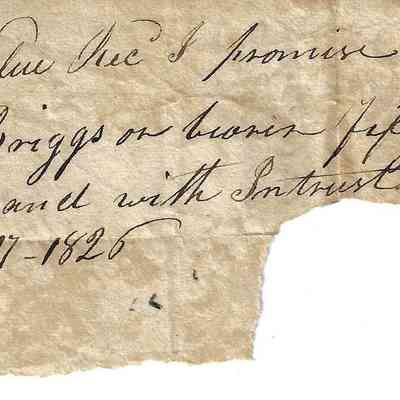 lue Rec^d I promise
riggs or bearer fif
and with Intrust
17-1826